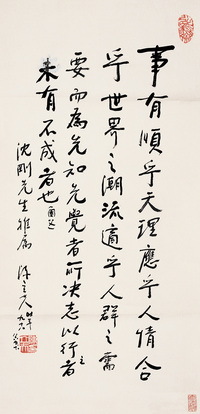 事有順乎天理應乎人情合
乎世界之潮流適乎人群之需
要而為先知先覺者所決志以行之者
未有不成者也
沈剛先生雅屬 陳立夫